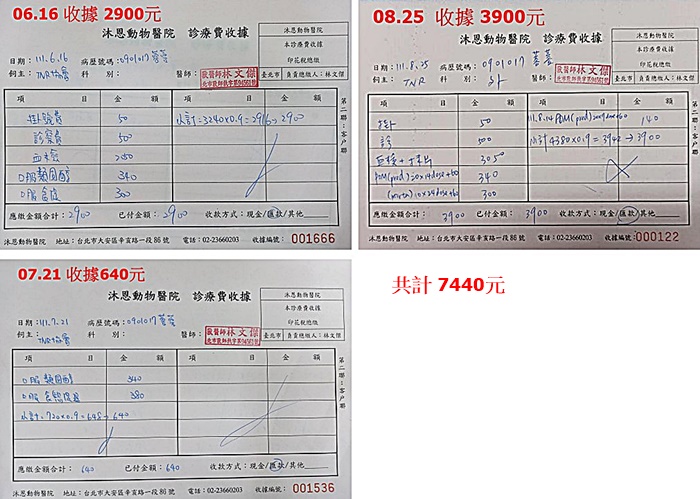 06.16 收據 2900元
沐恩動物醫院 診療費收據
沐恩動物醫院
本診療費收據
印花稅總繳
臺北市 負責總繳人：林文傑
日期：111.6.16 病歷號碼：0901017
飼主：TNR協會 科別： 醫師：
獸醫師林文傑
項 目 金 額 項 目 金 額
掛號費 50 小計=3240×0.9=2916→2900
診察費 500
血檢
口服類固醇 340
口服 300
第二聯：客戶聯
應繳金額合計：2900 已付金額：2900 收款方式：現金/匯款/其他
沐恩動物醫院 地址：台北市大安區辛亥路一段86號 電話：02-23660203 收據編號：001666
08.25 收據 3900元
沐恩動物醫院 診療費收據
沐恩動物醫院
本診療費收據
印花稅總繳
臺北市 負責總繳人：林文傑
日期：111.8.25 病歷號碼：0901017
飼主：TNR 科別： 醫師：
獸醫師林文傑
項 目 金 額 項 目 金 額
掛 50 140
診 500 小計4380×0.9=3942→3900
3050
340
300
第二聯：客戶聯
應繳金額合計：3900 已付金額：3900 收款方式：現金/匯款/其他
沐恩動物醫院 地址：台北市大安區辛亥路一段86號 電話：02-23660203 收據編號：000122
07.21 收據640元
沐恩動物醫院 診療費收據
沐恩動物醫院
本診療費收據
印花稅總繳
臺北市 負責總繳人：林文傑
日期：111.7.21 病歷號碼：0901017
飼主：TNR協會 科別： 醫師：
獸醫師林文傑
項 目 金 額 項 目 金 額
口服類固醇 340
口服 380
小計=720×0.9=648→640
第二聯：客戶聯
應繳金額合計：640 已付金額：640 收款方式：現金/匯款/其他
沐恩動物醫院 地址：台北市大安區辛亥路一段86號 電話：02-23660203 收據編號：001536
共計 7440元